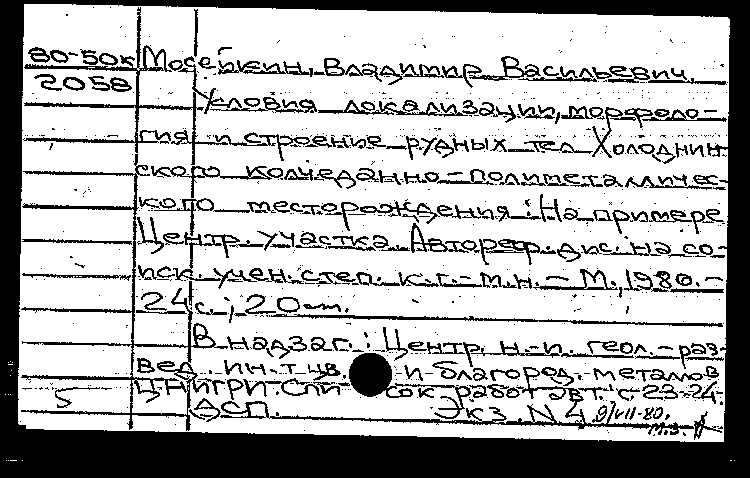 80-50к Мосейкин, Владимир Васильевич.
2058
Условия локализации, морфоло-
гия и строение рудных тел Холоднин
ского колчеданно-полиметалличес-
кого месторождения: На примере
Центр. участка. Автореф. дис. на со-
иск. учен. степ. к.г.-м.н. - М., 1980. -
24 с.; 20 см.
В надзаг.: Центр. н.-и. геол.-раз-
вед. ин.-т цв. и благород. металлов
ЦНИГРИ. Спи сок работ авт.: с. 23-24.
5 ДСП. Экз. N 4 9/VII-80.
М.З.